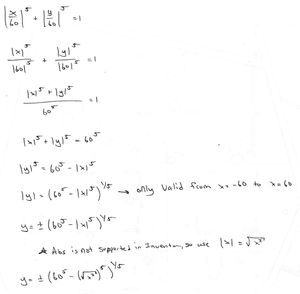 |x/60|^5 + |y/60|^5 = 1
|x|^5/|60|^5 + |y|^5/|60|^5 = 1
(|x|^5 + |y|^5)/60^5 = 1
|x|^5 + |y|^5 = 60^5
|y|^5 = 60^5 - |x|^5
|y| = (60^5 - |x|^5)^(1/5) → only valid from x=-60 to x=60
y = ± (60^5 - |x|^5)^(1/5)
* Abs is not supported in Inventor, so use |x| = √x²
y = ± (60^5 - (√x²)^5)^(1/5)